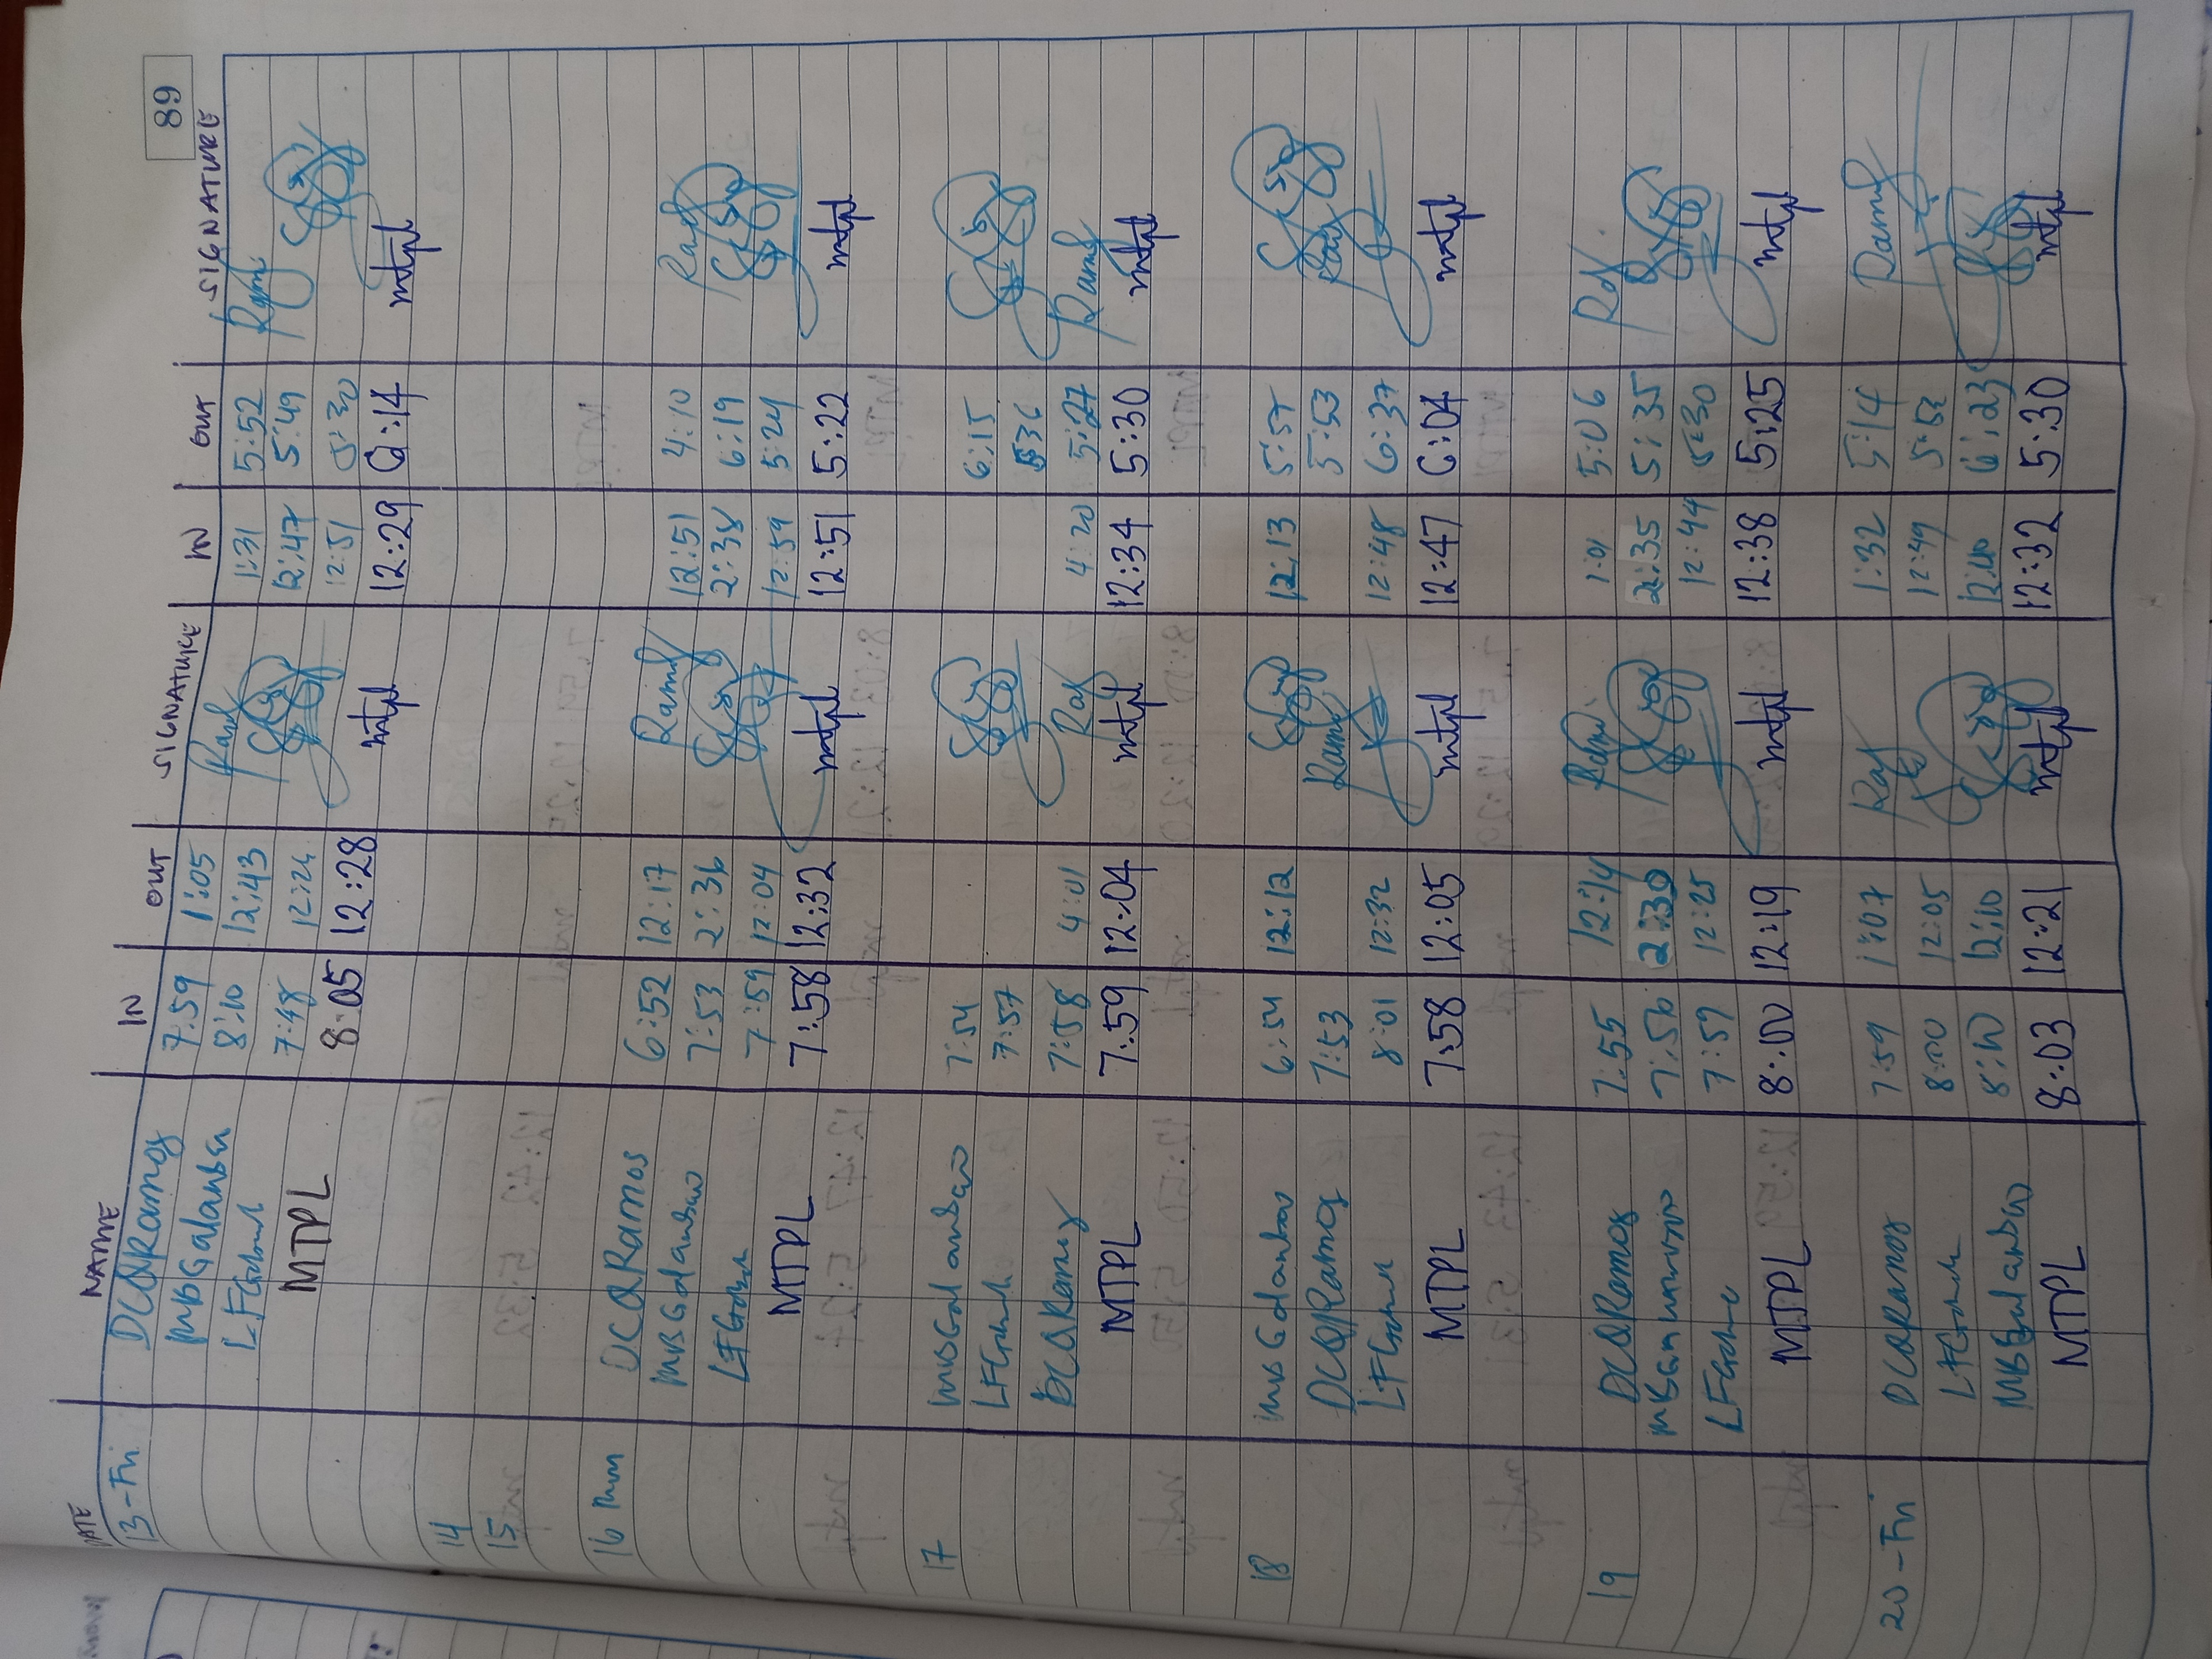 89
DATE NAME IN OUT SIGNATURE IN OUT SIGNATURE
13-Fri DCQRamos 7:59 1:05 1:31 5:52
8:10 12:43 12:47 5:49
7:48 12:51 5:30
MTPL 8:05 12:28 mtpl 12:29 6:14 mtpl
14
15
16 DCQRamos 6:52 12:17 Ramos 12:51 4:10
MBGalanbao 7:53 2:36 2:38 6:19
7:59 12:04 12:59 5:24
MTPL 7:58 12:32 mtpl 12:51 5:22 mtpl
17 MBGalanbao 7:54 6:15
7:57 5:36
DCQRamos 7:58 4:01 4:20 5:27 Ramos
MTPL 7:59 12:04 mtpl 12:34 5:30 mtpl
18 MBGalanbao 6:54 12:12 12:13 5:57
DCQRamos 7:53 5:53
8:01 12:32 12:48 6:37
MTPL 7:58 12:05 mtpl 12:47 6:04 mtpl
19 DCQRamos 7:55 12:14 1:01 5:06
7:56 2:30 2:35 5:35
7:59 12:25 12:44 5:30
MTPL 8:00 12:19 mtpl 12:38 5:25 mtpl
20-Fri DCQRamos 7:59 1:07 1:32 5:14
8:00 12:05 12:49 5:52
MBGalanbao 8:10 12:10 12:10 6:23
MTPL 8:03 12:21 mtpl 12:32 5:30 mtpl